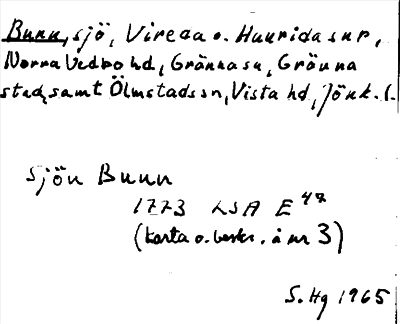 Bunn, sjö, Vireda o. Haurida snr,
Norra Vedbo hd, Gränna sn, Gränna
stad, samt Ölmstads sn, Vista hd, Jönk. l.
Sjön Bunn
1773 LSA E 48
(karta o. beskr. å nr 3)
S. Hg 1965